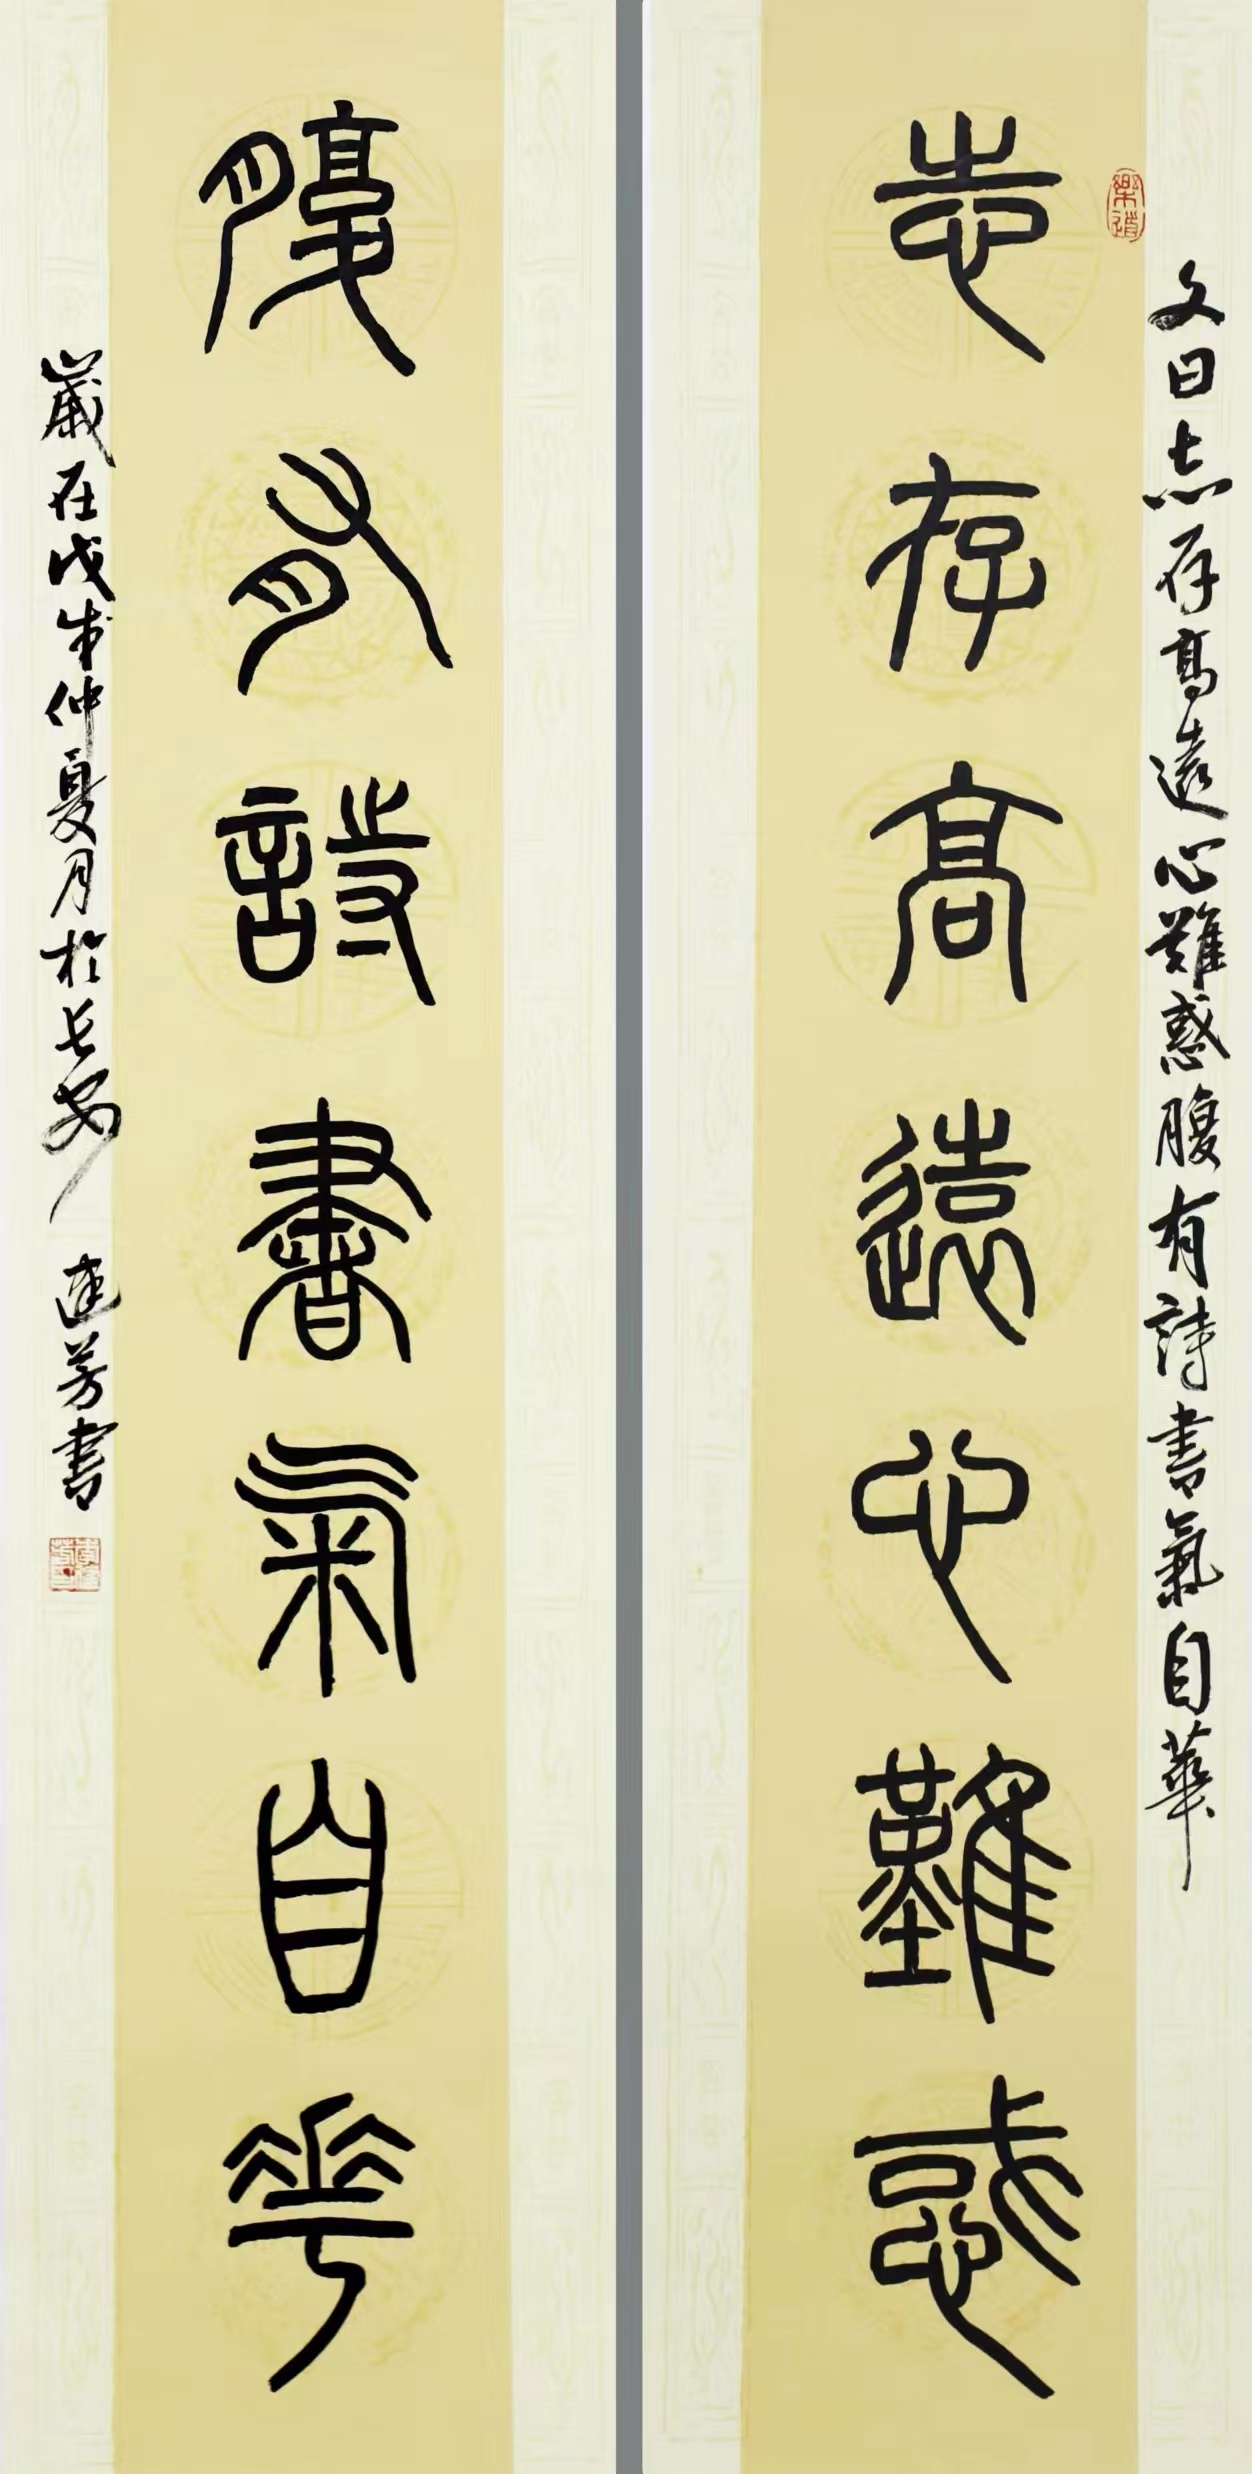 樂道
文曰志存高遠心難惑腹有詩書氣自華
志存高遠心難惑
腹有詩書氣自華
歲在戊戌仲夏月於長安 建芳書